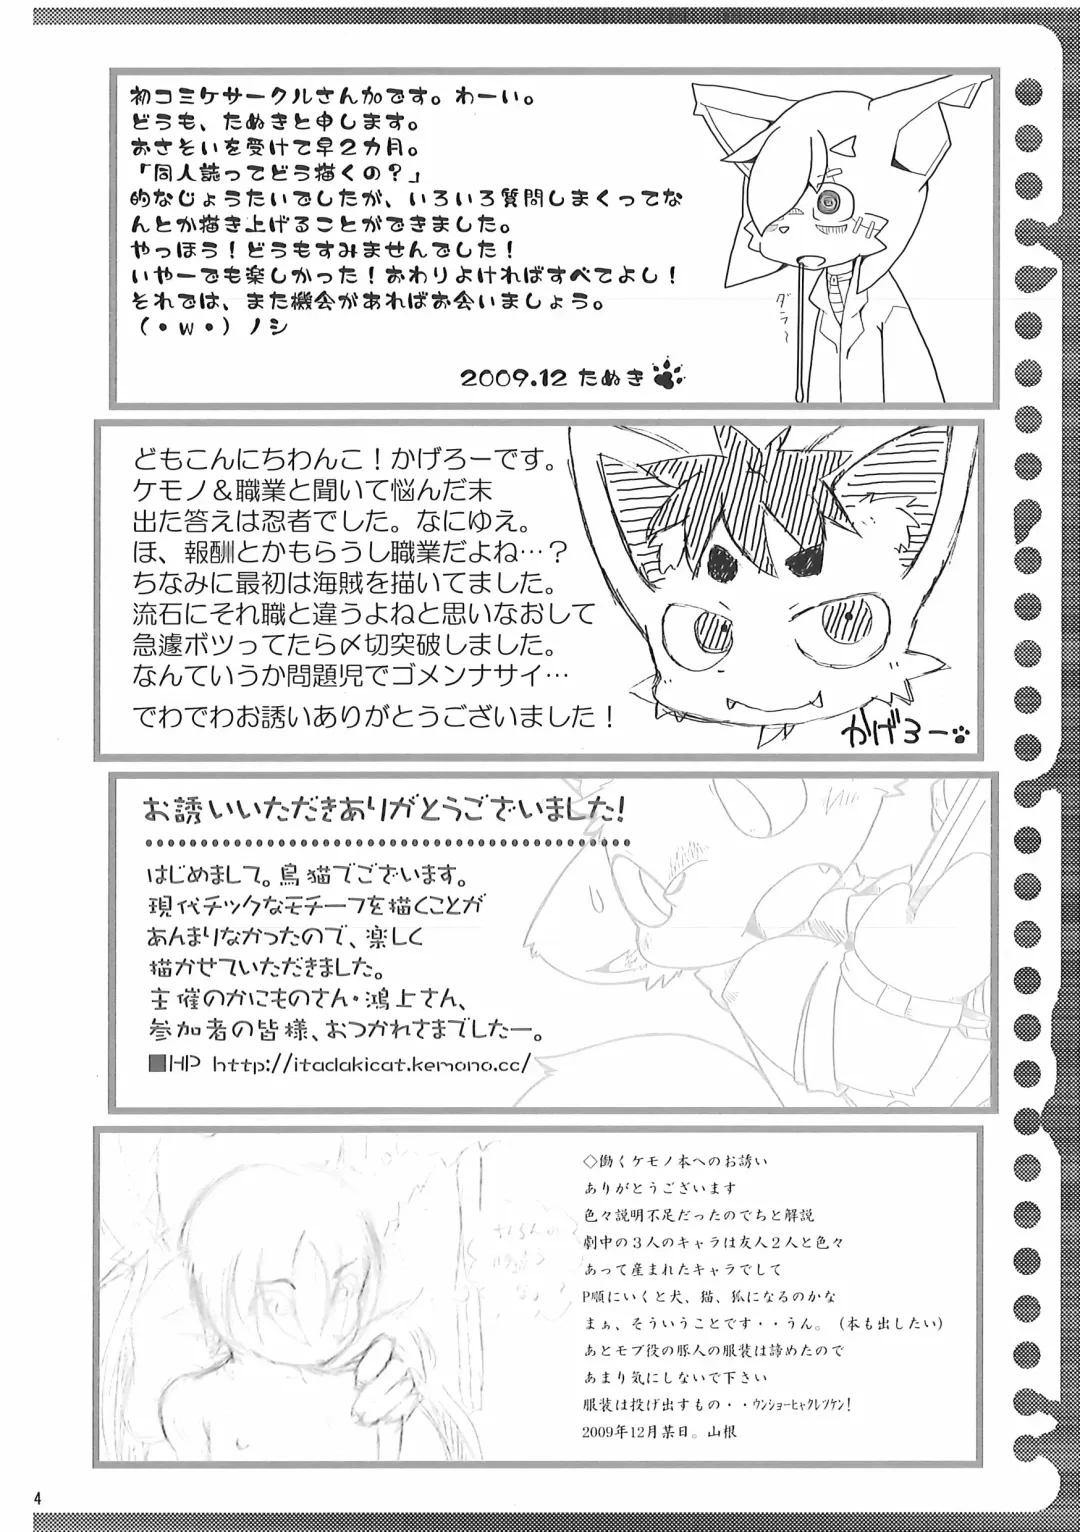 初コミケサークルさん加です。わーい。
どうも、たぬきと申します。
おさそいを受けて早２カ月。
「同人誌ってどう描くの？」
的なじょうたいでしたが、いろいろ質問しまくってな
んとか描き上げることができました。
やっほう！どうもすみませんでした！
いやーでも楽しかった！おわりよければすべてよし！
それでは、また機会があればお会いましょう。
（・ｗ・）ノシ
2009.12 たぬき
ダラ〜
どもこんにちわんこ！かげろーです。
ケモノ＆職業と聞いて悩んだ末
出た答えは忍者でした。なにゆえ。
ほ、報酬とかもらうし職業だよね…？
ちなみに最初は海賊を描いてました。
流石にそれ職と違うよねと思いなおして
急遽ボツってたら〆切突破しました。
なんていうか問題児でゴメンナサイ…
でわでわお誘いありがとうございました！
かげろー
お誘いいただきありがとうございました！
はじめまして。鳥猫でございます。
現代チックなモチーフを描くことが
あんまりなかったので、楽しく
描かせていただきました。
主催のかにものさん・鴻上さん、
参加者の皆様、おつかれさまでしたー。
■HP http://itadakicat.kemono.cc/
◇働くケモノ本へのお誘い
ありがとうございます
色々説明不足だったのでちと解説
劇中の３人のキャラは友人２人と色々
あって産まれたキャラでして
P順にいくと犬、猫、狐になるのかな
まぁ、そういうことです・・うん。（本も出したい）
あとモブ役の豚人の服装は諦めたので
あまり気にしないで下さい
服装は投げ出すもの・・ｳﾝｼｮｰﾋｬｸﾚﾂｹﾝ！
2009年12月某日。山根
4